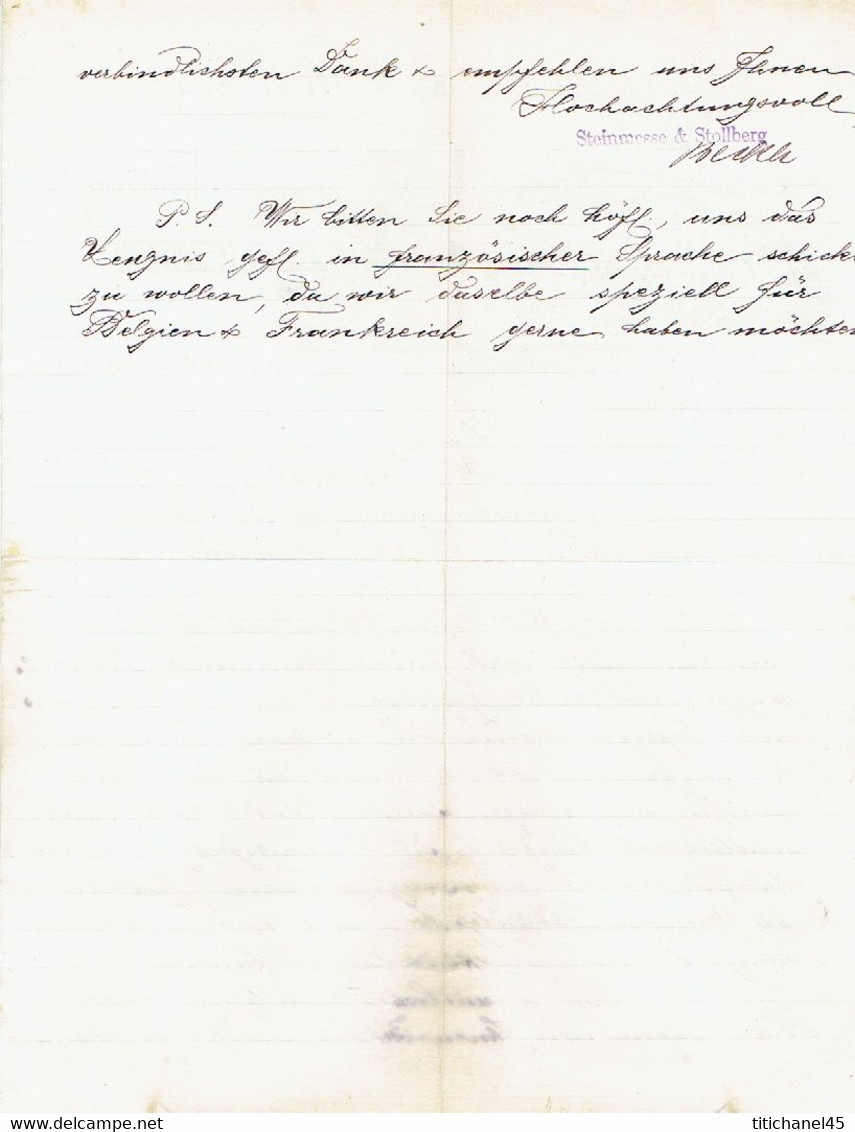 verbindlichsten Dank & empfehlen uns Ihnen
Hochachtungsvoll
Steinmesse & Stollberg
P. S. Wir bitten Sie noch höfl., uns das
Zeugnis gefl. in französischer Sprache schicke
zu wollen, da wir dasselbe speziell für
Belgien & Frankreich gerne haben möchten
titichanel45